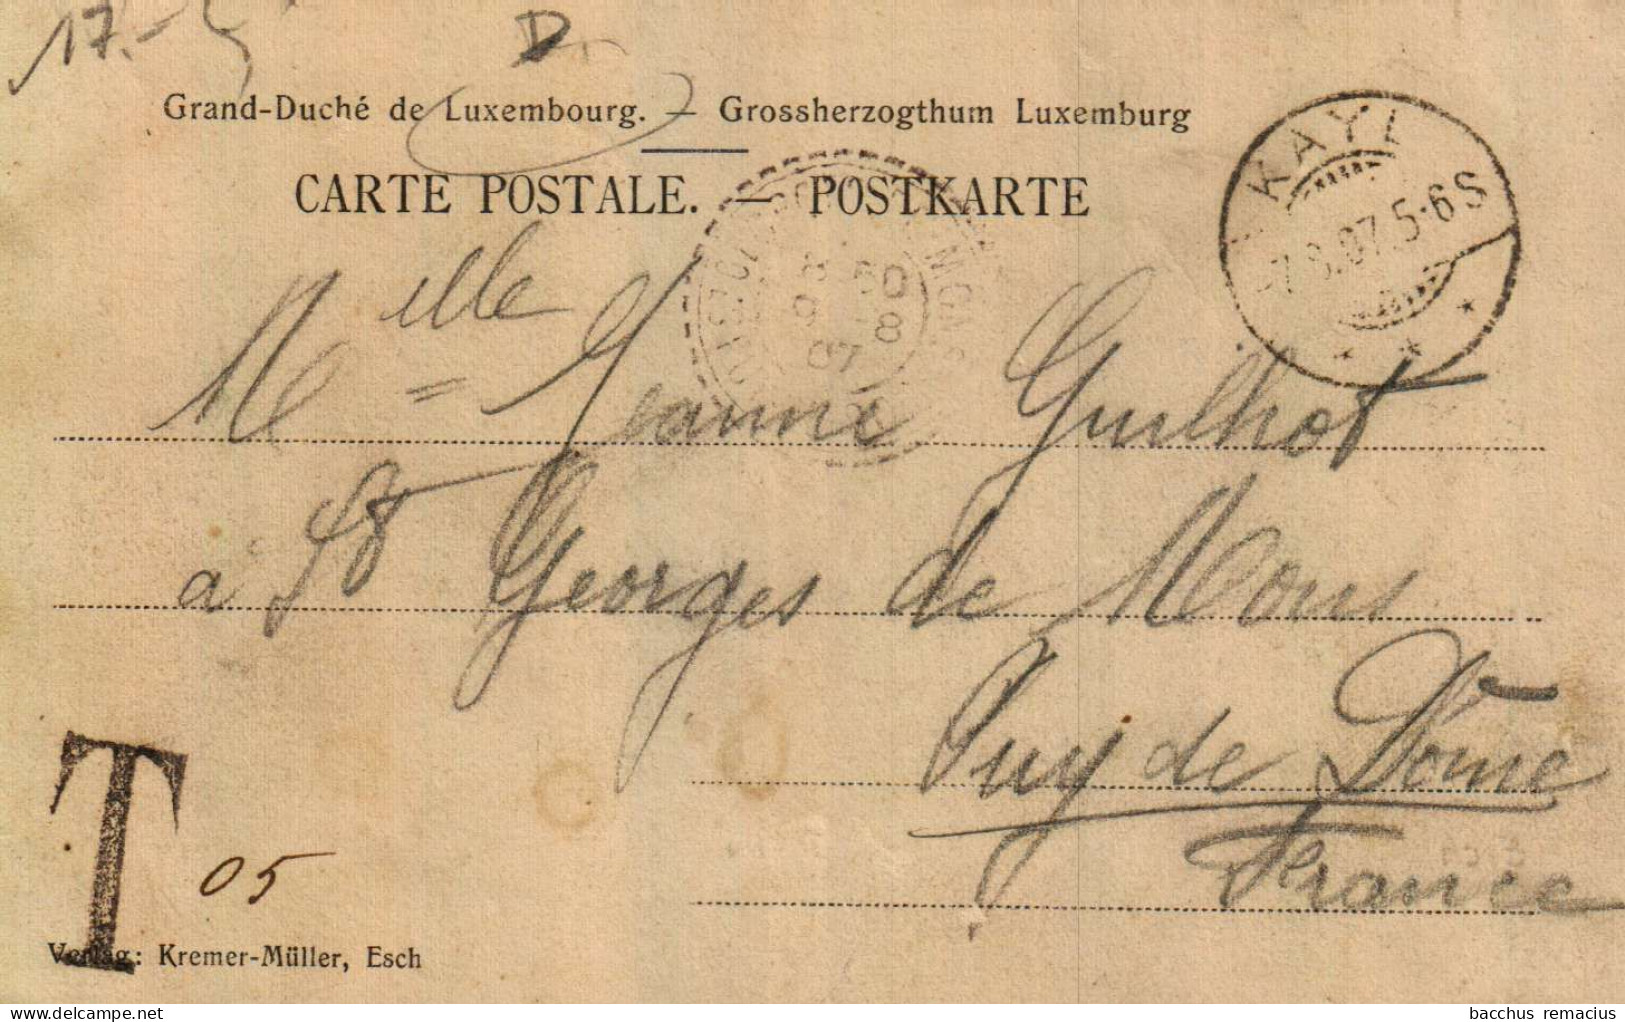 17.-
D
Grand-Duché de Luxembourg. — Grossherzogthum Luxemburg
CARTE POSTALE. — POSTKARTE
KAYL
-7.8.07.5-6S
8 50
9 -8
07
Melle = Jeanne Guilhot
à St Georges de Mons
Puy de Dôme
France
T
05
Verlag: Kremer-Müller, Esch
delcampe.net
bacchus remacius